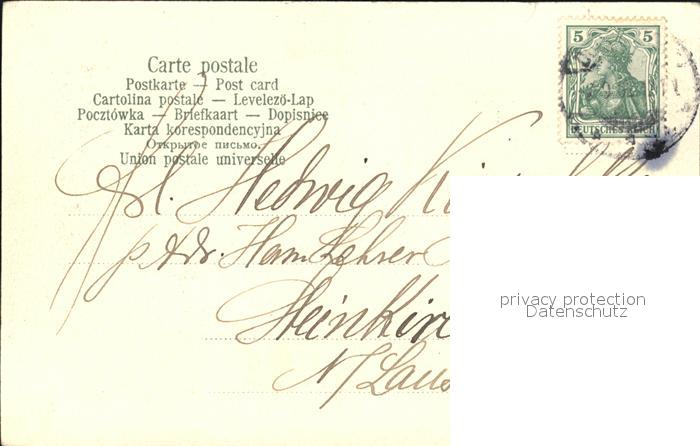 Carte postale
Postkarte — Post card
Cartolina postale — Levelező-Lap
Pocztówka — Briefkaart — Dopisnice
Karta korespondencyjna
Открытое письмо.
Union postale universelle
5 5
DEUTSCHES REICH
Hedwig
p. Adr. Herrn Lehrer
Steinkirc
N/Laus
privacy protection
Datenschutz